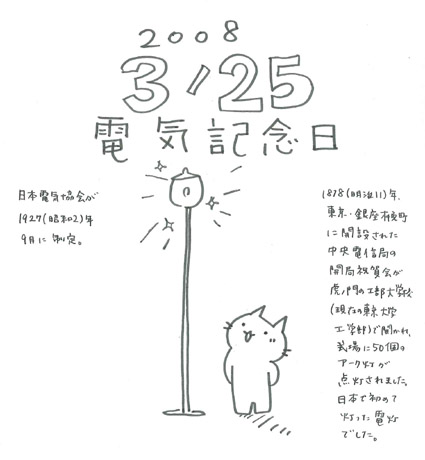 2008
3/25
電気記念日
日本電気協会が
1927(昭和2)年
9月に制定。
1878(明治11)年、
東京・銀座木挽町
に開設された
中央電信局の
開局祝賀会が
虎ノ門の工部大学校
(現在の東京大学
工学部)で開かれ、
式場に50個の
アーク灯が
点灯されました。
日本で初めて
灯った電灯
でした。